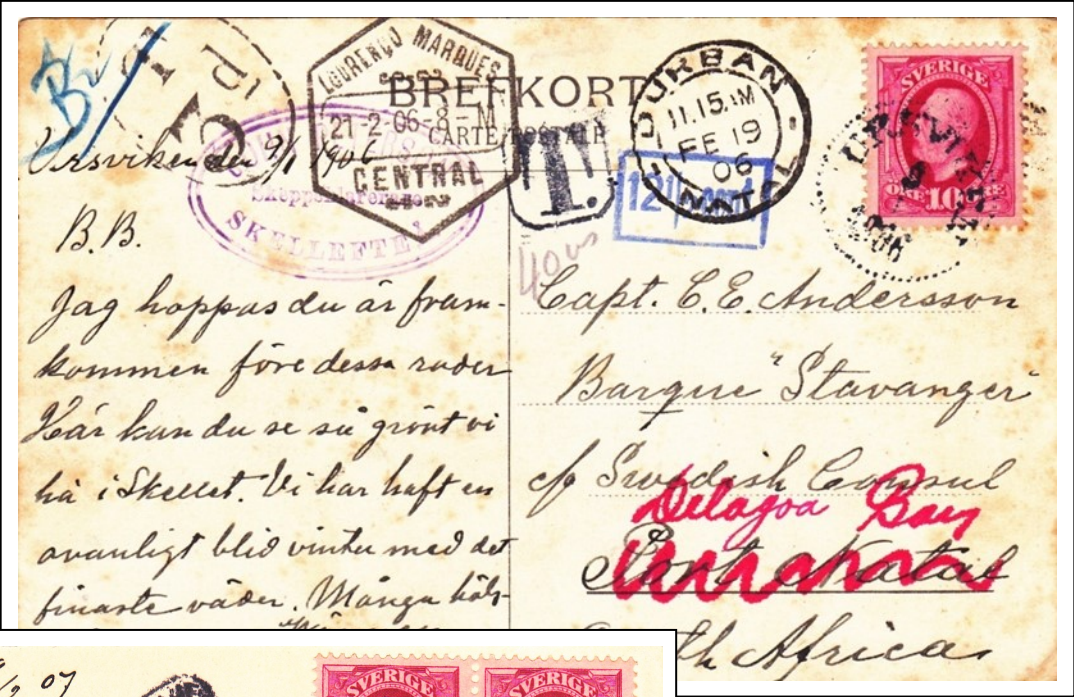 LOURENÇO MARQUES
21-2-06-8-M
CENTRAL
BREFKORT
CARTE POSTALE
DURBAN
11.15.AM
FE 19
06
NATAL
T.
12½ cent
SVERIGE
ÖRE 10 ÖRE
1906
SKELLEFTEÅ
Örsviken den 9/1 1906
B.B.
Jag hoppas du är fram-
kommen före dessa rader
Här kan du se så grönt vi
ha i Skellet. Vi har haft en
ovanligt blid vinter med det
finaste väder. Många häls-
40
Capt. C. E. Andersson
Barque "Stavanger"
c/o Swedish Consul
Delagoa Bay
Port Natal
South Africa
07
SVERIGE SVERIGE